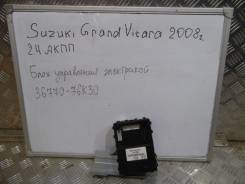 Suzuki Grand Vitara 2008г
2.4 АКПП
Блок управления электрикой
36770-76K30